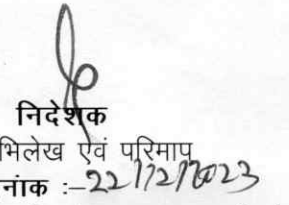 निदेशक
भिलेख एवं परिमाप
नांक :-22/12/2023